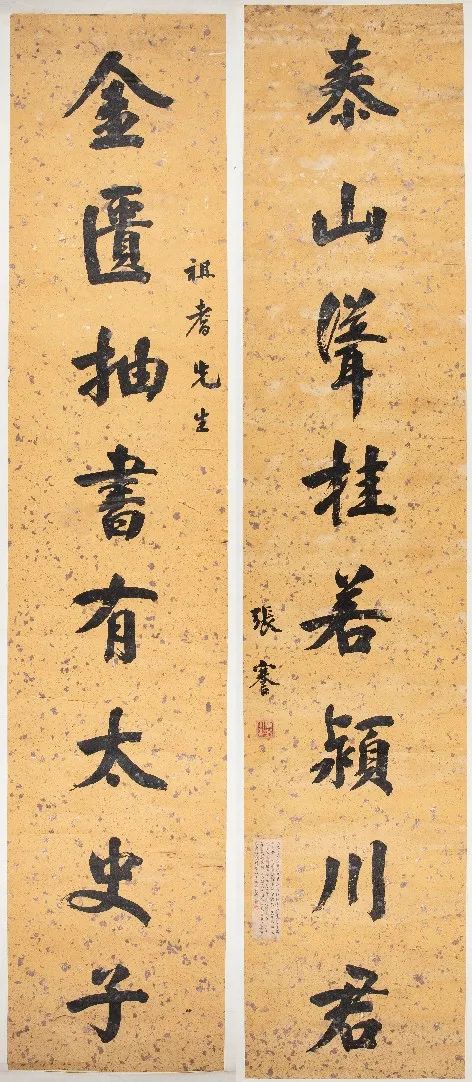 金匱抽書有太史子
祖耆先生
泰山聳桂若潁川君
張謇